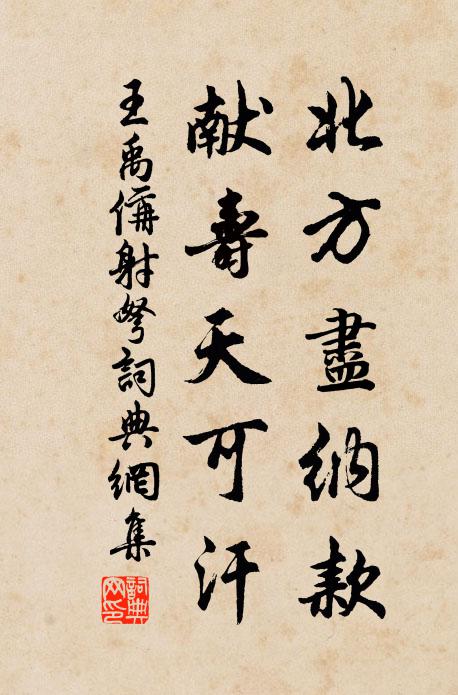 北方盡納款
献壽天可汗
王禹偁射弩詞典網集
詞典網印